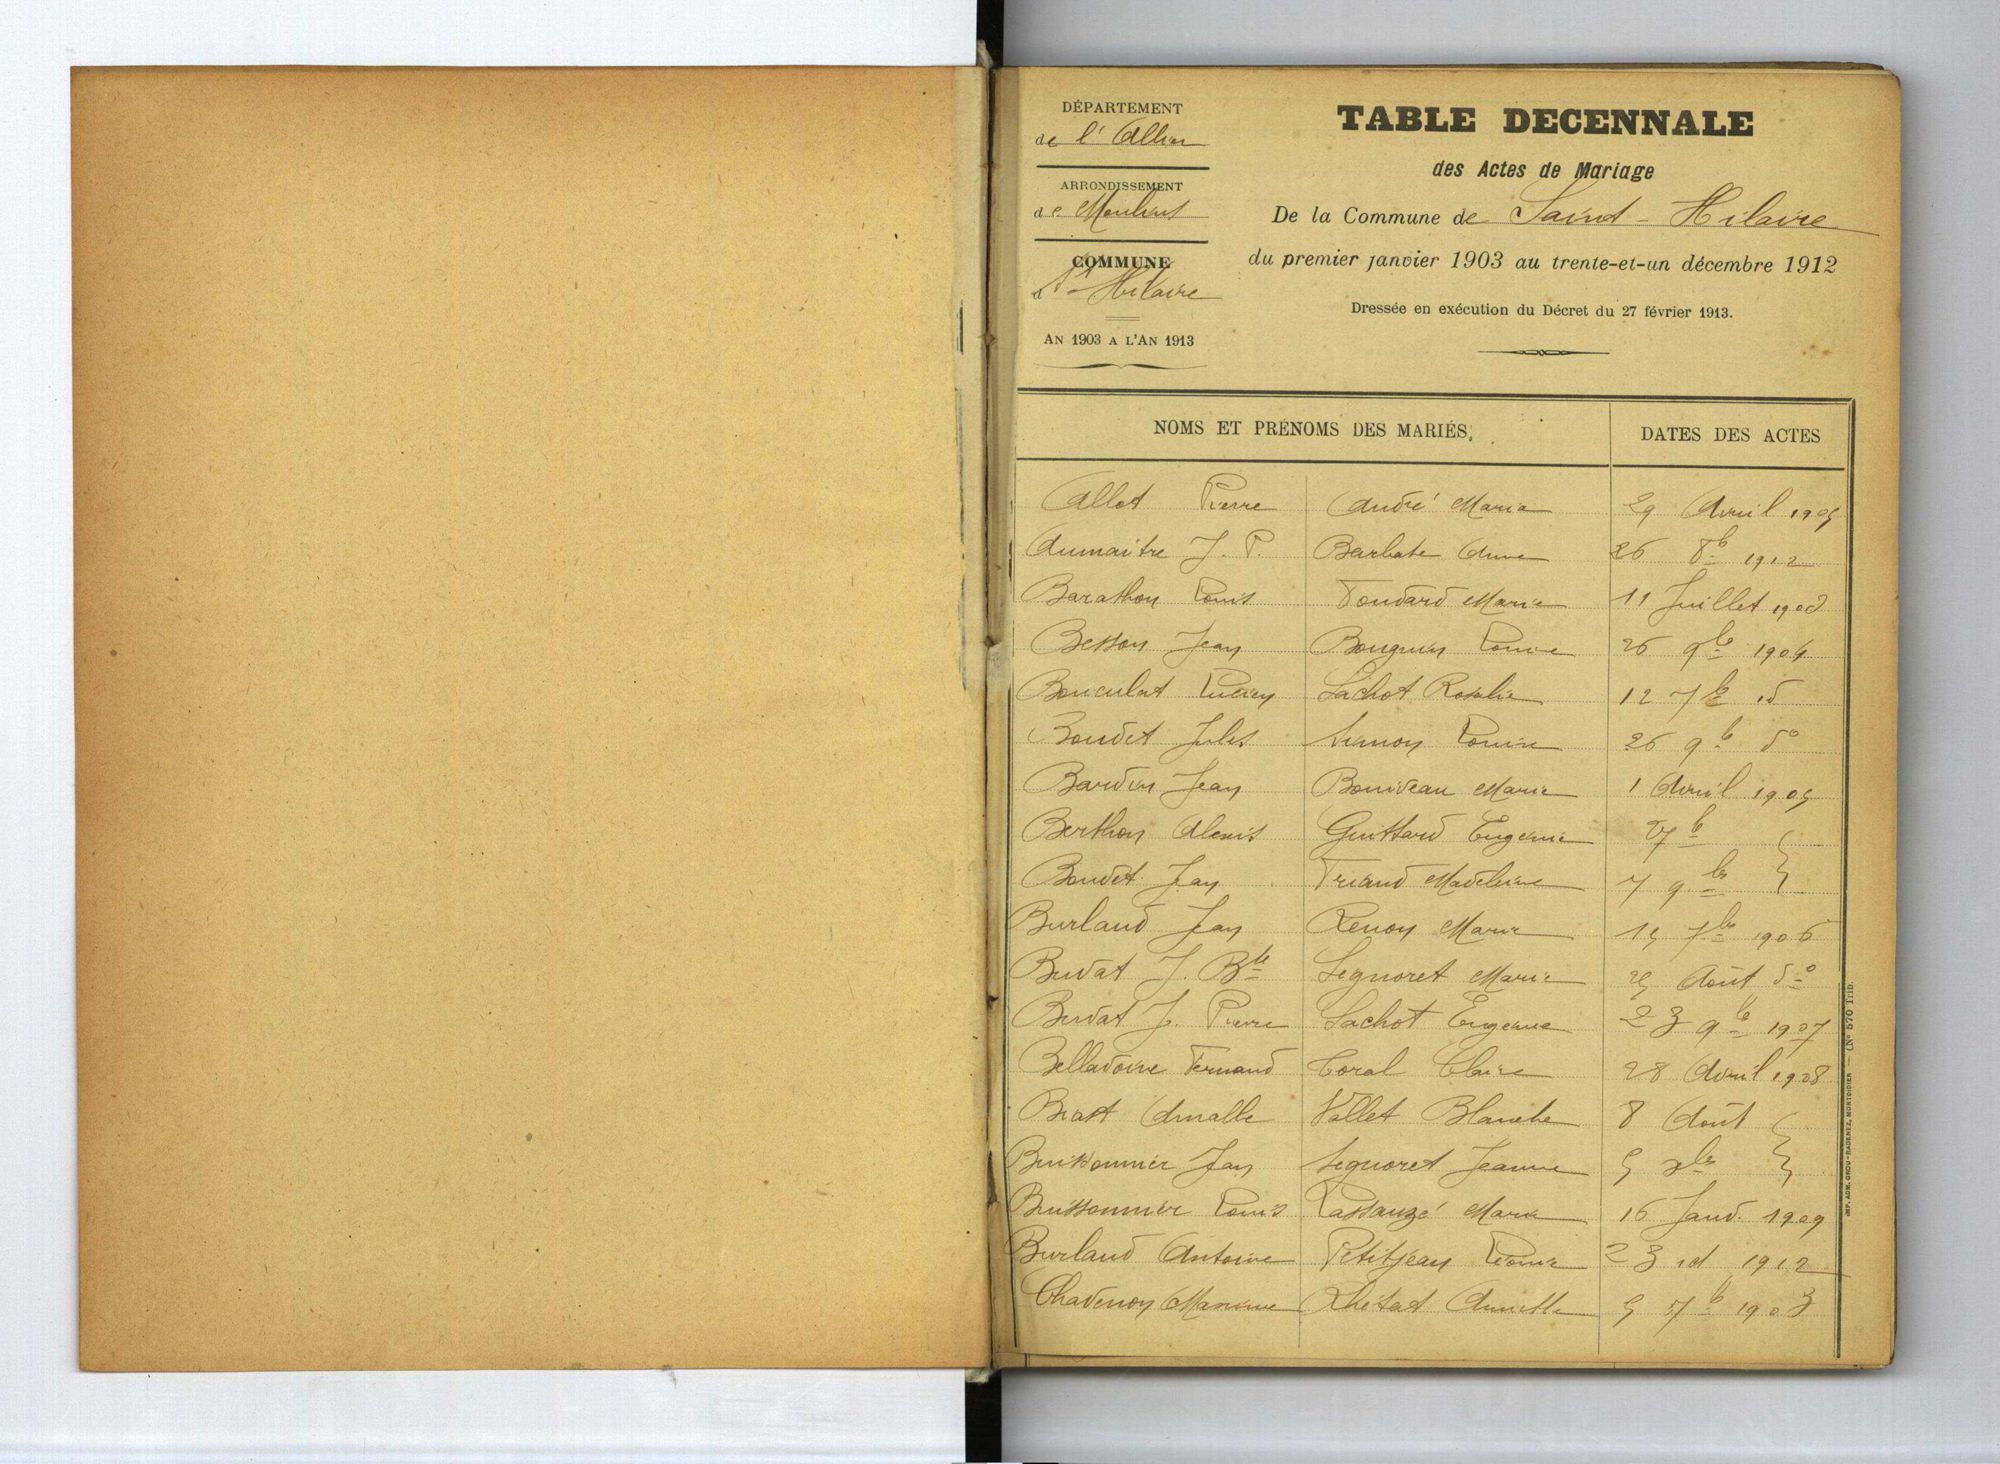 DÉPARTEMENT
de l'Allier
ARRONDISSEMENT
de Moulins
COMMUNE
d St Hilaire
AN 1903 A L'AN 1913
TABLE DECENNALE
des Actes de Mariage
De la Commune de Saint-Hilaire
du premier janvier 1903 au trente-et-un décembre 1912
Dressée en exécution du Décret du 27 février 1913.
NOMS ET PRÉNOMS DES MARIÉS. DATES DES ACTES
Allot Pierre André Maria 29 Avril 1905
Aumaitre J. P. Barbate Anne 26 8b 1912
Barathon Louis Foudard Marie 11 Juillet 1903
Besson Jean Bougnin Louise 26 9b 1904
Bouculat Lucien Lachot Rosalie 12 7b id
Boudet Jules Simon Louise 26 9b do
Bardin Jean Boniveau Marie 1 Avril 1905
Berthon Alexis Guittard Eugenie 7b
Boudet Jean Friaud Madeleine 7 9bre
Burlaud Jean Renon Marie 15 7bre 1906
Buvat J. Bte Legnoret Marie 25 Août do
Buvat J. Pierre Lachot Eugenie 23 9b 1907
Belladoine Fernand Coral Claire 28 Avril 1908
Amable Vallet Blanche 8 Août
Buissonnier Jean Legnoret Jeanne 5 xbre
Buissonnier Louis Passauzé Marie 16 Janv. 1909
Burland Antoine Petitjean Léonie 23 id 1912
Chavenon Maxime Rhétat Annette 5 7b 1903
IMP. ADM. GROU-RADENEZ, MONTDIDIER — (N° 570 TRID.